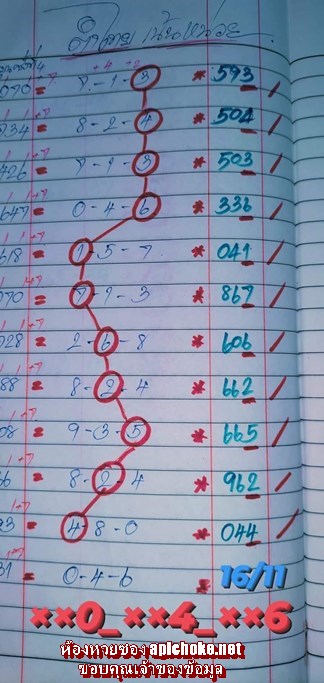 070 = 7-1-3 * 593 /
934 = 8-2-4 * 504 /
426 = 7-1-3 * 503 /
647 = 0-4-6 * 336 /
618 = 1-5-7 * 041 /
070 = 7-1-3 * 867 /
028 = 2-6-8 * 606 /
88 = 8-2-4 * 662 /
08 = 9-3-5 * 665 /
6 = 8-2-4 * 962 /
93 = 4-8-0 * 044 /
31 0-4-6 * 16/11
××0_××4_××6
ห้องหวยซอง apichoke.net
ขอบคุณเจ้าของข้อมูล